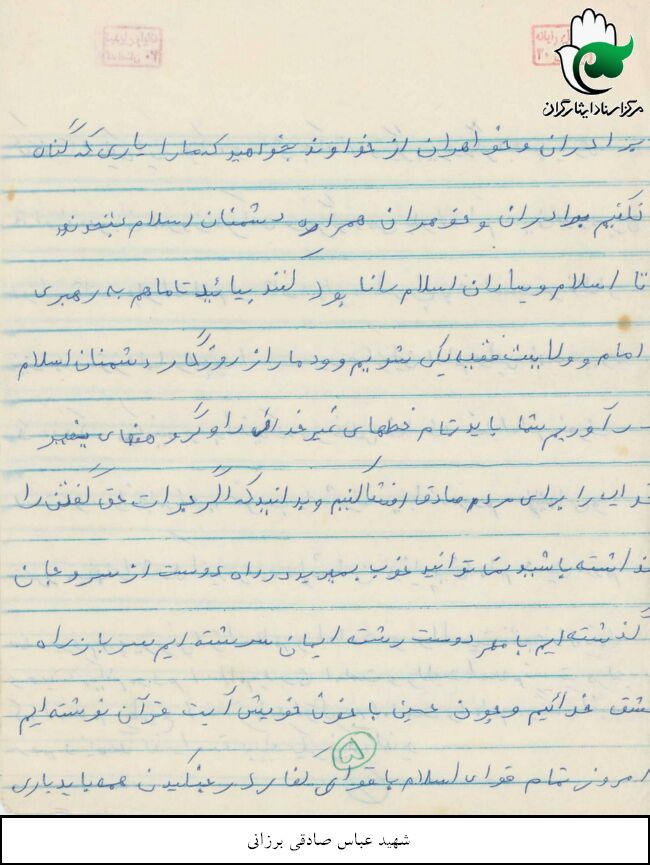 مرکز اسناد ایثارگران
برادران و خواهران از خداوند بخواهید که ما را یاری که گناه
نکنیم برادران و خوهران همراه دشمنان اسلام
تا اسلام و یاران اسلام را نابود کنند بیائید تا ما هم به رهبری
امام و ولایت فقیه یکی شویم و دمار از روزگار دشمنان اسلام
در آوریم شما باید تمام خطهای غیر خدائی را و گروههای غیر
خدایی را برای مردم صادق افشا کنیم و بدانید که اگر جرات حق گفتن را
نداشته باشید نمی توانید خوب بمیرید در راه دوست از سر و جان
گذشته ایم با مهر دوست رشته ایمان سرشته ایم سرباز راه
عشق خدائیم و چون حسین با خون خویش آیت قرآن نوشته ایم
امروز تمام قوای اسلام با قوای کفار در جنگیدن همه باید یاری
۵
شهید عباس صادقی برزانی